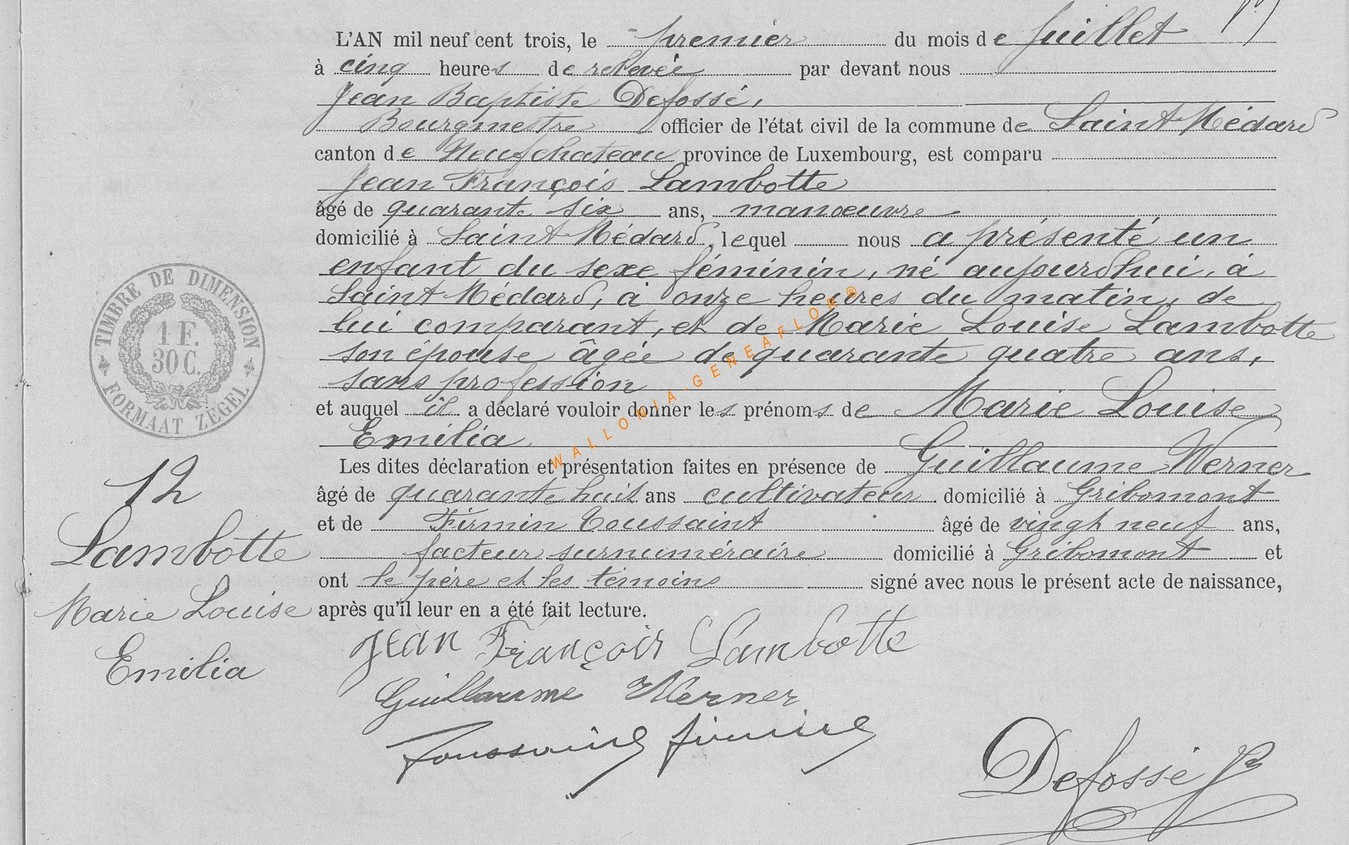 L'AN mil neuf cent trois, le premier du mois de juillet
à cinq heures de relevée par devant nous
Jean Baptiste Defossé,
Bourgmestre officier de l'état civil de la commune de Saint Médard
canton de Neufchateau province de Luxembourg, est comparu
Jean François Lambotte
âgé de quarant six ans, manoeuvre
domicilié à Saint Médard, lequel nous a présenté un
enfant du sexe féminin, né aujourd'hui, à
Saint Médard, à onze heures du matin, de
lui comparant, et de Marie Louise Lambotte
son épouse âgée de quarante quatre ans,
sans profession
et auquel il a déclaré vouloir donner les prénoms de Marie Louise
Emilia.
Les dites déclaration et présentation faites en présence de Guillaume Werner
âgé de quarante huit ans cultivateur domicilié à Gribomont
et de Firmin Toussaint âgé de vingh neuf ans,
facteur surnuméraire domicilié à Gribomont et
ont le père et les témoins signé avec nous le présent acte de naissance,
après qu'il leur en a été fait lecture.
Jean François Lambotte
Guillaume Werner
Toussaint Firmin
Defossé
12
Lambotte
Marie Louise
Emilia
TIMBRE DE DIMENSION
1 F.
30 C.
FORMAAT ZEGEL
WALLONIA-GENEAFLOR@